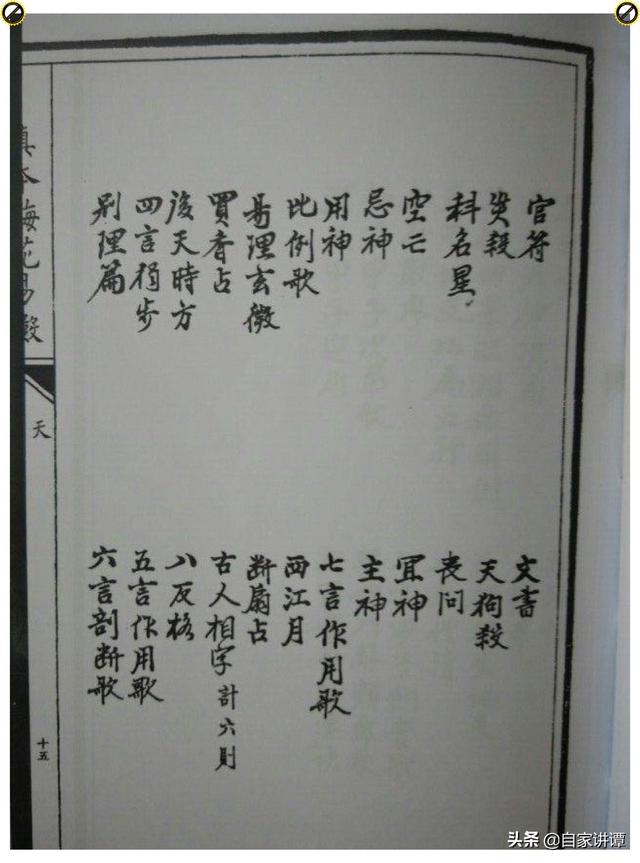 官符 文書
災殺 天狗殺
科名星 喪問
空亡 冝神
忌神 主神
用神 七言作用歌
比例歌 西江月
易理玄微 断扇占
買香占 古人相字 計六則
後天時方 八反格
四言独步 五言作用歌
别理篇 六言剖断歌
真本梅花易數
天
十五
头条 @自家讲谭